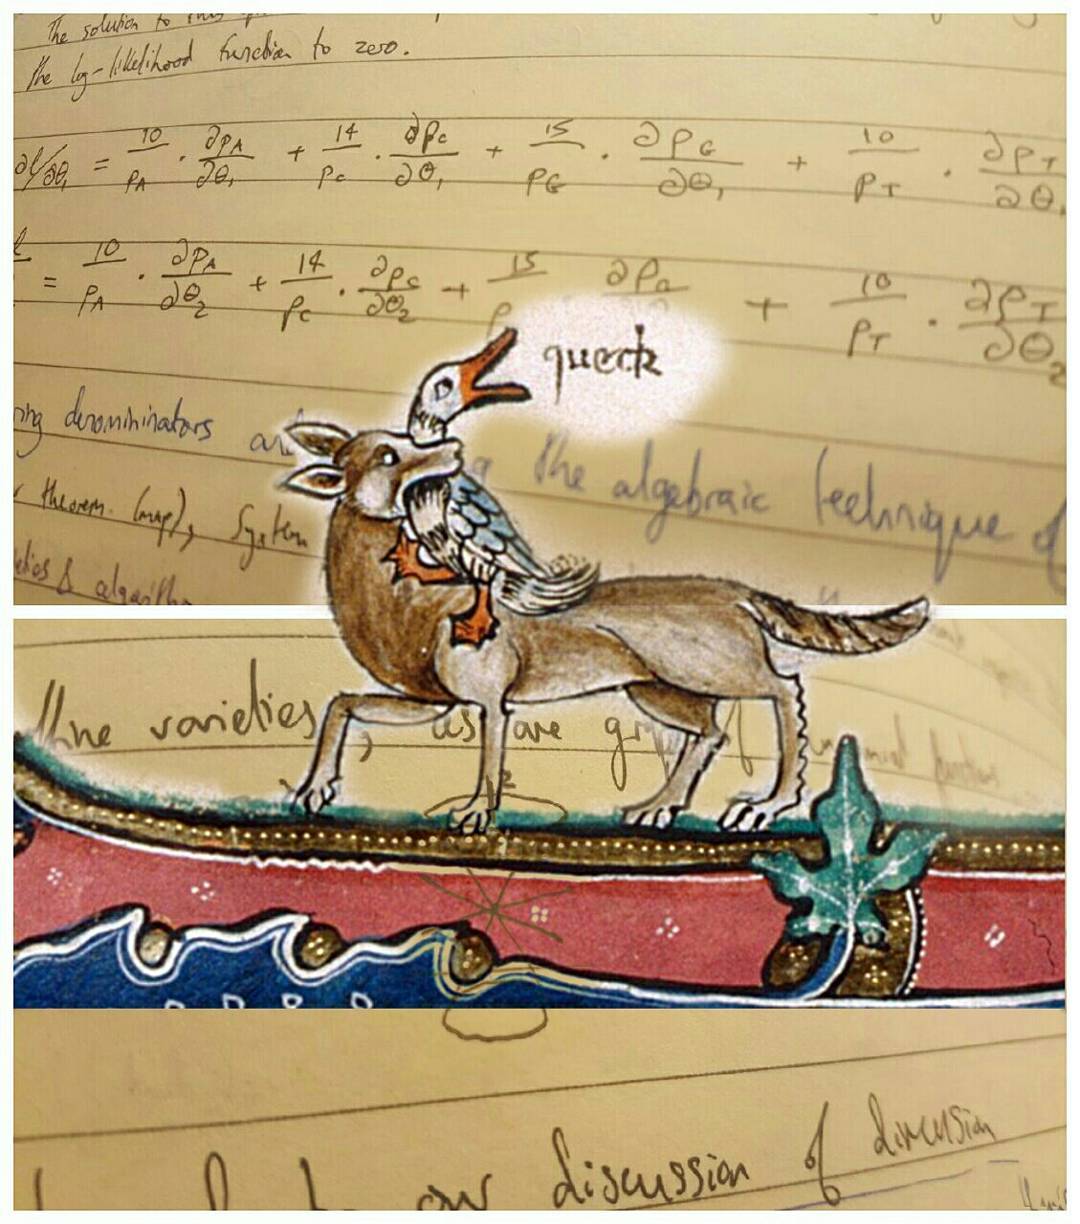 The solution to this
the log-likelihood function to zero.
∂ℓ/∂θ₁ = 10/p_A · ∂p_A/∂θ₁ + 14/p_C · ∂p_C/∂θ₁ + 15/p_G · ∂p_G/∂θ₁ + 10/p_T · ∂p_T/∂θ₁
= 10/p_A · ∂p_A/∂θ₂ + 14/p_C · ∂p_C/∂θ₂ + 15/p ∂p_G + 10/p_T · ∂p_T/∂θ₂
queck
ing denominators the algebraic technique of
theorem (map), System
& algorithm
ffine varieties, us are
our discussion of dimension